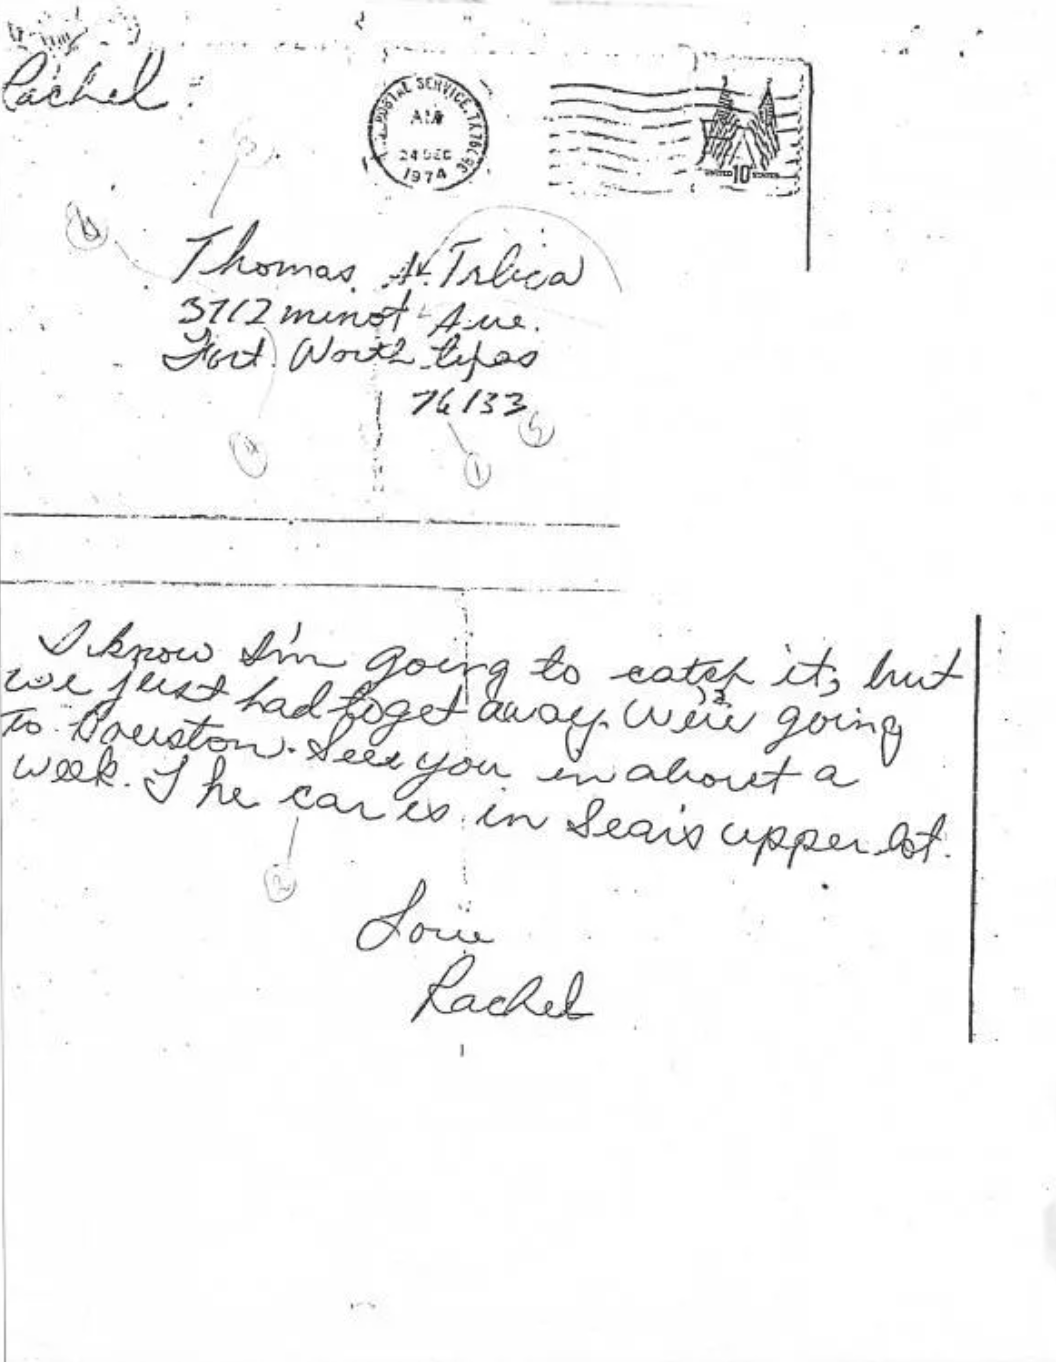 Rachel
U.S. POSTAL SERVICE, TX
24 DEC
1974
UNITED 10c STATES
3
Thomas A. Trlica
3712 minot Ave.
Fort Worth texas
76133
5
4
1
I know I'm going to catch it, but
we just had to get away. We're going
to Houston. See you in about a
week. The car is in Sear's upper lot.
2
Love
Rachel